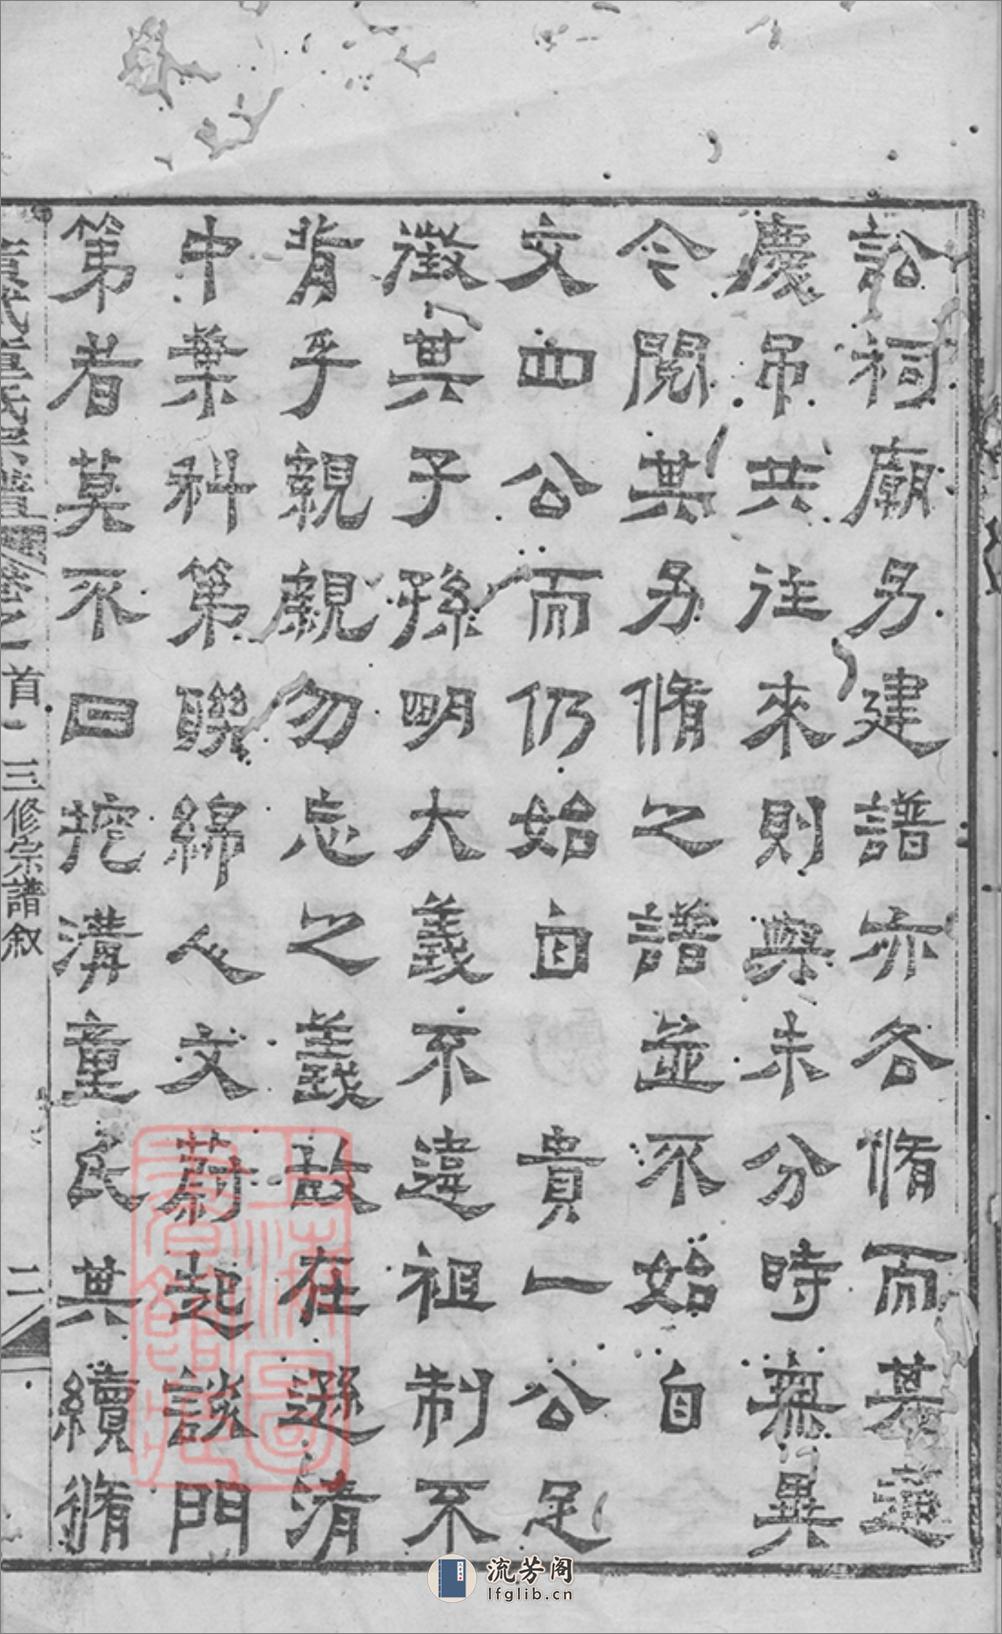 訟祠廟另建譜亦各脩而墓莚
慶吊共往來則與未分時無異
今閱其另脩之譜並不始自
文四公而仍始自貴一公足
徵其子孫明大義不違祖制不
背乎親親勿忘之義故在遜清
中葉科第聯綿人文蔚起談門
第者莫不曰挖溝童氏其續脩
卷之首一 三修宗譜叙 二
上海圖書館藏
流芳阁
lfglib.cn